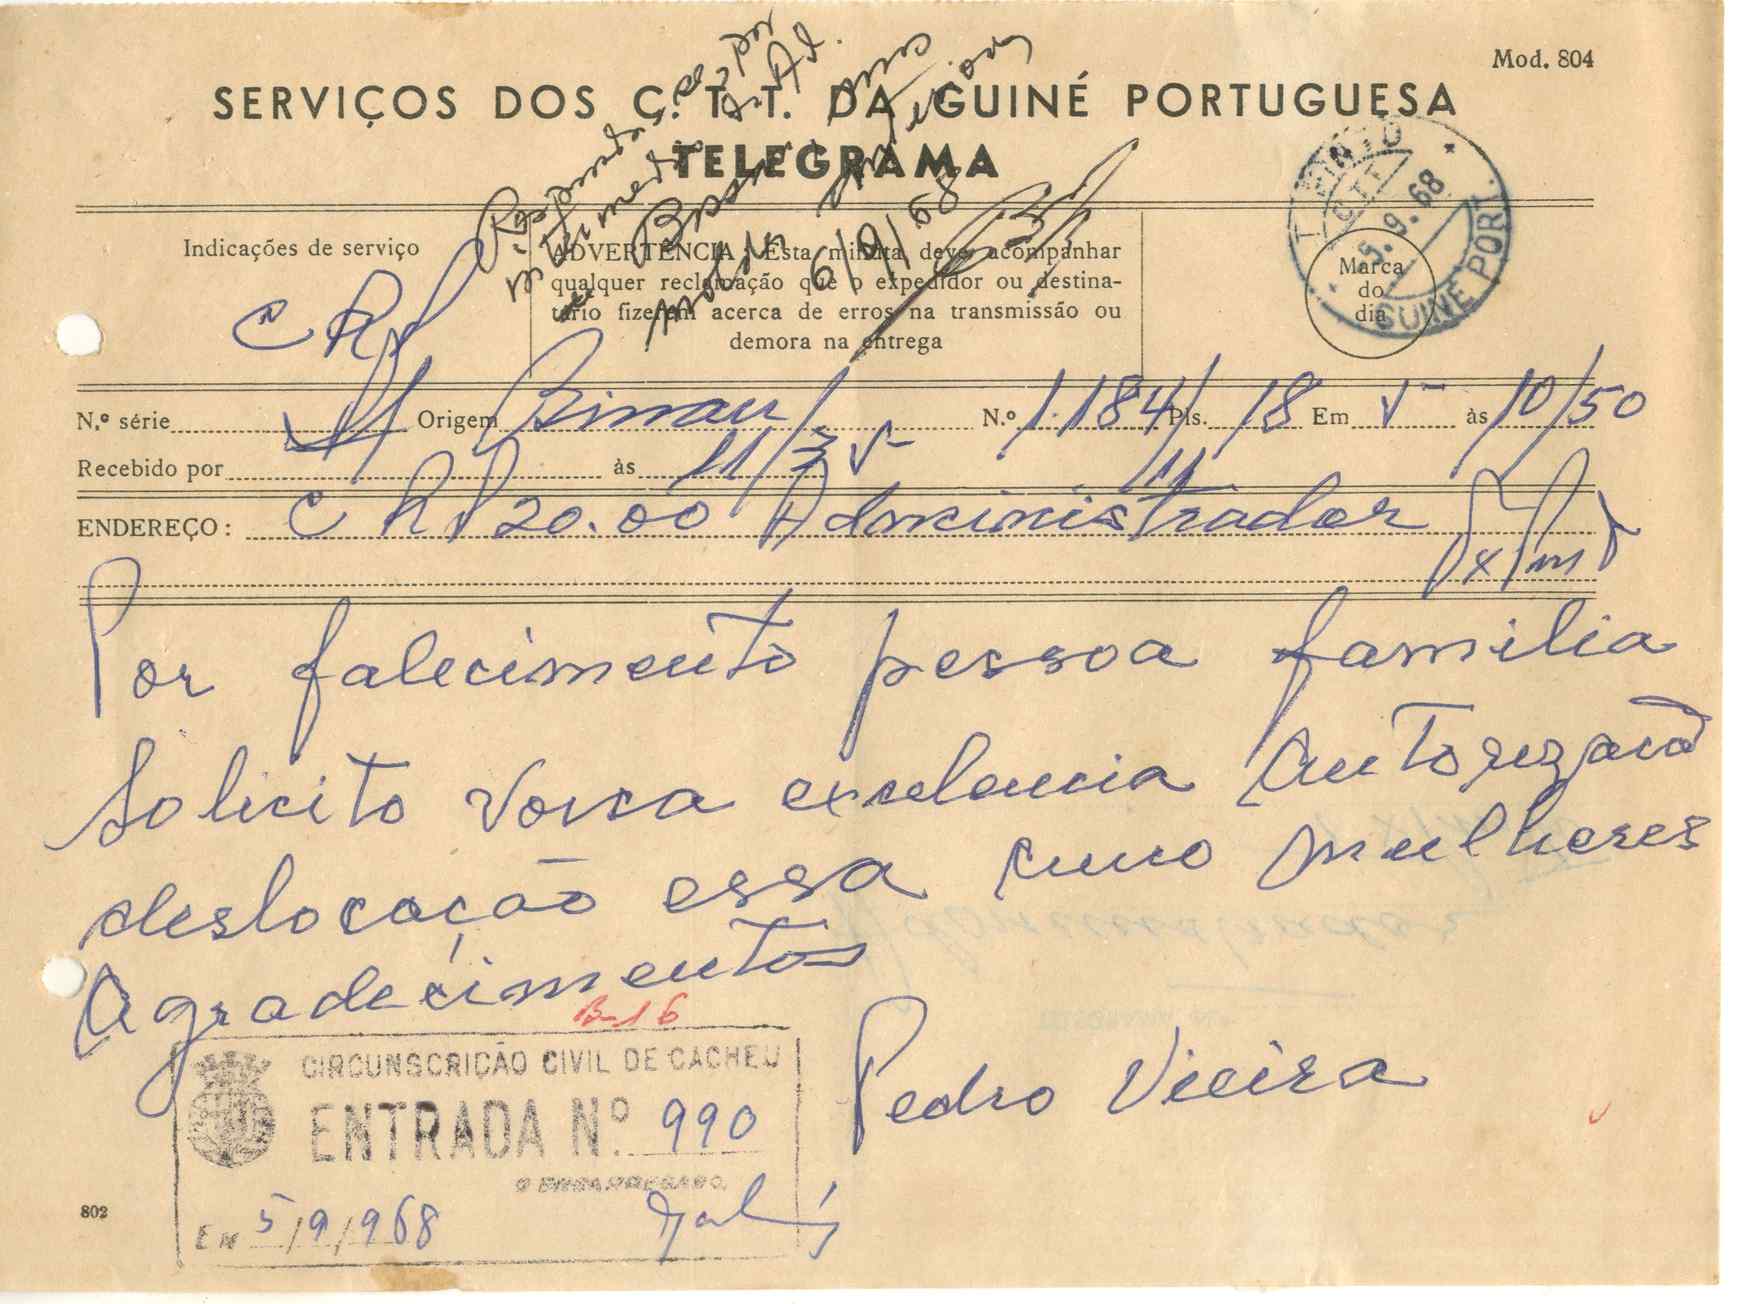 Mod. 804
SERVIÇOS DOS C. T. T. DA GUINÉ PORTUGUESA
TELEGRAMA
6/9/68
Indicações de serviço
CRP
ADVERTÊNCIA: Esta minuta deve acompanhar
qualquer reclamação que o expedidor ou destina-
tário fizerem acerca de erros na transmissão ou
demora na entrega
5.9.68
GUINÉ PORT.
Marca
do
dia
N.º série Origem Binar N.º 1184/ Pls. 18 Em 5 às 10/50
Recebido por às 11/
ENDEREÇO: CRP 20.00 Administrador
Por falecimento pessoa familia
Solicito vossa excelencia autorização
deslocação essa cinco mulheres
Agradecimentos
B-16
Pedro Vieira
CIRCUNSCRIÇÃO CIVIL DE CACHEU
ENTRADA N.º 990
O ENCARREGADO,
EM 5/9/968
802